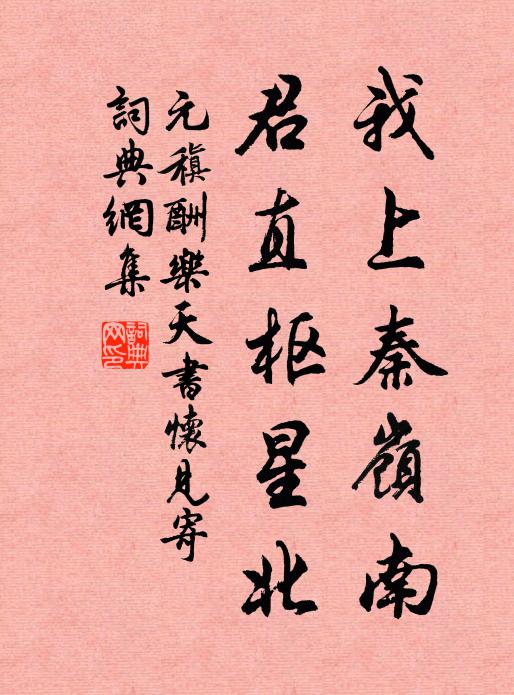 我上秦嶺南
君直枢星北
元稹酬樂天書懷見寄
詞典網集
詞典网印